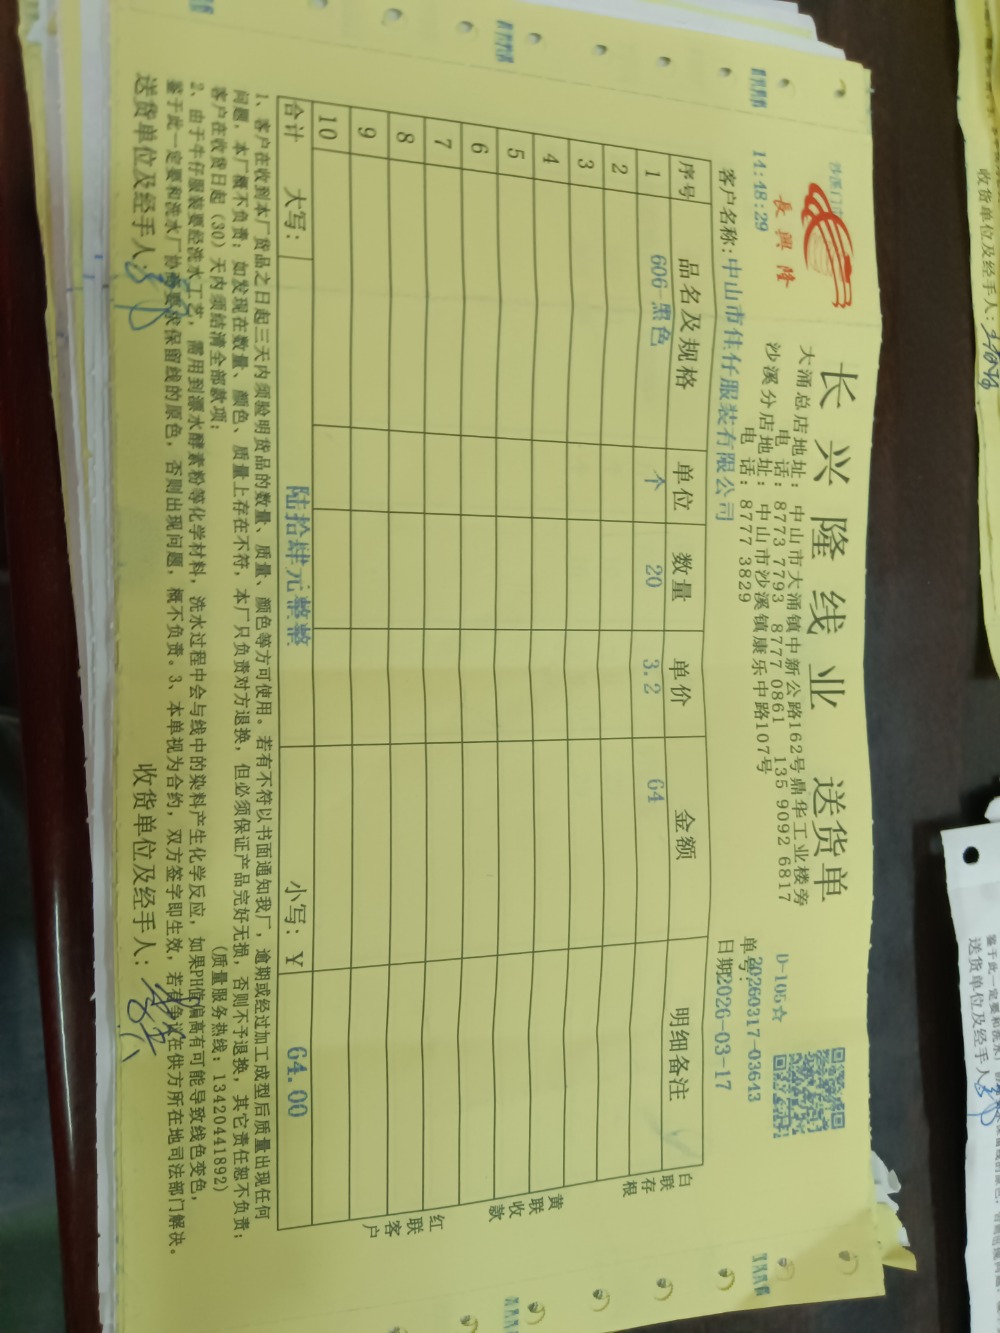 長興隆
长兴隆线业 送货单
大涌总店地址：中山市大涌镇中新公路162号鼎华工业楼旁
电话：8773 7793 8777 0861 135 9092 6817
沙溪分店地址：中山市沙溪镇康乐中路107号
电话：8777 3829
D-105☆
14:48:29
单号：20260317-03643
客户名称：中山市佳仔服装有限公司
日期：2026-03-17
序号 品名及规格 单位 数量 单价 金额 明细备注
1 606-黑色 个 20 3.2 64
2
3
4
5
6
7
8
9
10
合计 大写： 陆拾肆元整整 小写：￥ 64.00
白联存根
黄联收款
红联客户
1、客户在收到本厂货品之日起三天内须验明货品的数量、质量、颜色等方可使用。若有不符以书面通知我厂，逾期或经过加工成型后质量出现任何
问题，本厂概不负责；如发现在数量、颜色、质量上存在不符，本厂只负责对方退换，但必须保证产品完好无损，否则不予退换，其它责任恕不负责；
客户在收货日起（30）天内须结清全部款项；
（质量服务热线：13420441892）
2、由于牛仔服装要经洗水工艺，需用到漂水酵素粉等化学材料，洗水过程中会与线中的染料产生化学反应，如果PH值偏高有可能导致线色变色，
鉴于此一定要和洗水厂协商要求保留线的原色，否则出现问题，概不负责。3、本单视为合约，双方签字即生效，若有争议在供方所在地司法部门解决。
送货单位及经手人：
收货单位及经手人：
收货单位及经手人：
送货单位及经手人